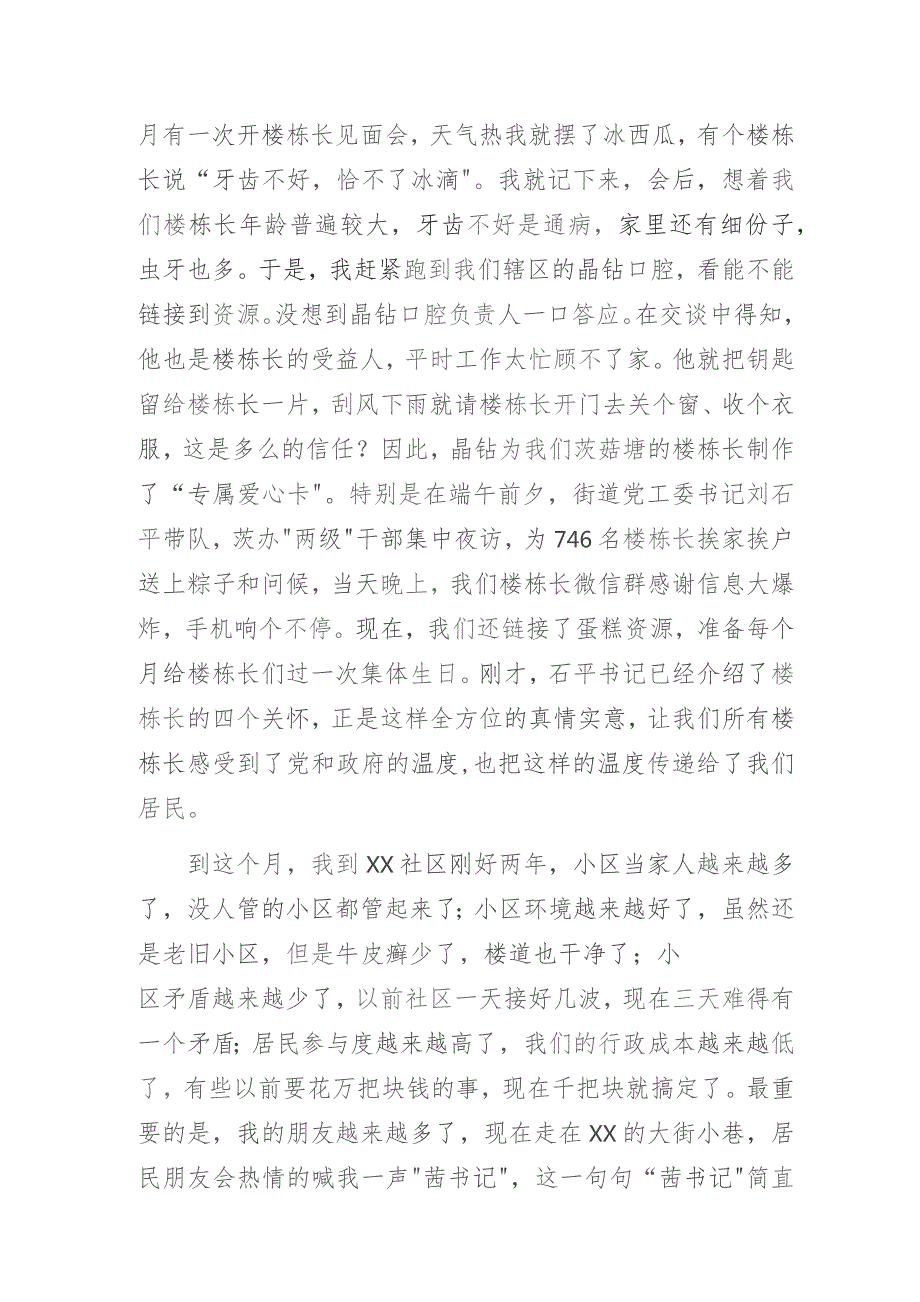 月有一次开楼栋长见面会，天气热我就摆了冰西瓜，有个楼栋
长说“牙齿不好，恰不了冰滴"。我就记下来，会后，想着我
们楼栋长年龄普遍较大，牙齿不好是通病，家里还有细份子，
虫牙也多。于是，我赶紧跑到我们辖区的晶钻口腔，看能不能
链接到资源。没想到晶钻口腔负责人一口答应。在交谈中得知，
他也是楼栋长的受益人，平时工作太忙顾不了家。他就把钥匙
留给楼栋长一片，刮风下雨就请楼栋长开门去关个窗、收个衣
服，这是多么的信任？因此，晶钻为我们茨菇塘的楼栋长制作
了“专属爱心卡"。特别是在端午前夕，街道党工委书记刘石
平带队，茨办"两级"干部集中夜访，为 746 名楼栋长挨家挨户
送上粽子和问候，当天晚上，我们楼栋长微信群感谢信息大爆
炸，手机响个不停。现在，我们还链接了蛋糕资源，准备每个
月给楼栋长们过一次集体生日。刚才，石平书记已经介绍了楼
栋长的四个关怀，正是这样全方位的真情实意，让我们所有楼
栋长感受到了党和政府的温度,也把这样的温度传递给了我们
居民。
到这个月，我到 XX 社区刚好两年，小区当家人越来越多
了，没人管的小区都管起来了；小区环境越来越好了，虽然还
是老旧小区，但是牛皮癣少了，楼道也干净了；小
区矛盾越来越少了，以前社区一天接好几波，现在三天难得有
一个矛盾；居民参与度越来越高了，我们的行政成本越来越低
了，有些以前要花万把块钱的事，现在千把块就搞定了。最重
要的是，我的朋友越来越多了，现在走在 XX 的大街小巷，居
民朋友会热情的喊我一声"茜书记"，这一句句“茜书记"简直